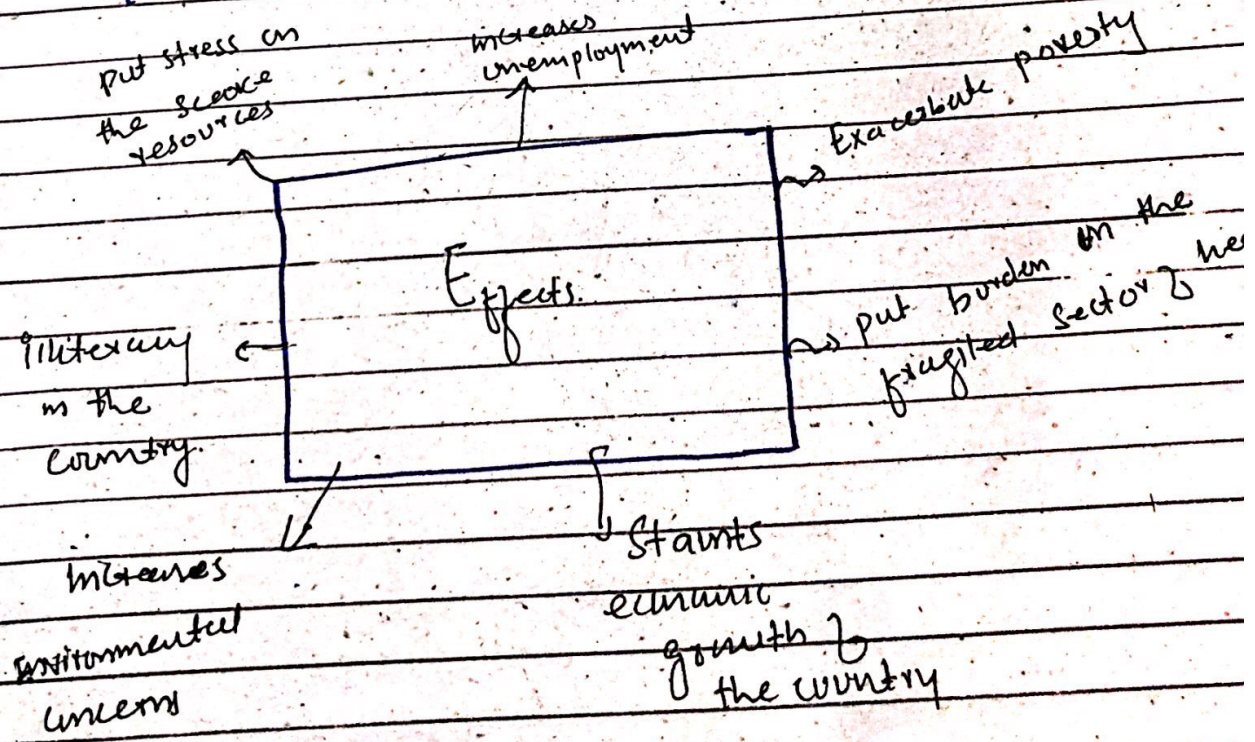 put stress on
the scarce
resources
increases
unemployment
Exacerbate poverty
Effects.
put burden on the
fragiled sector of
illiteracy
in the
country.
Increases
Environmental
concerns
Staunts
economic
growth of
the country